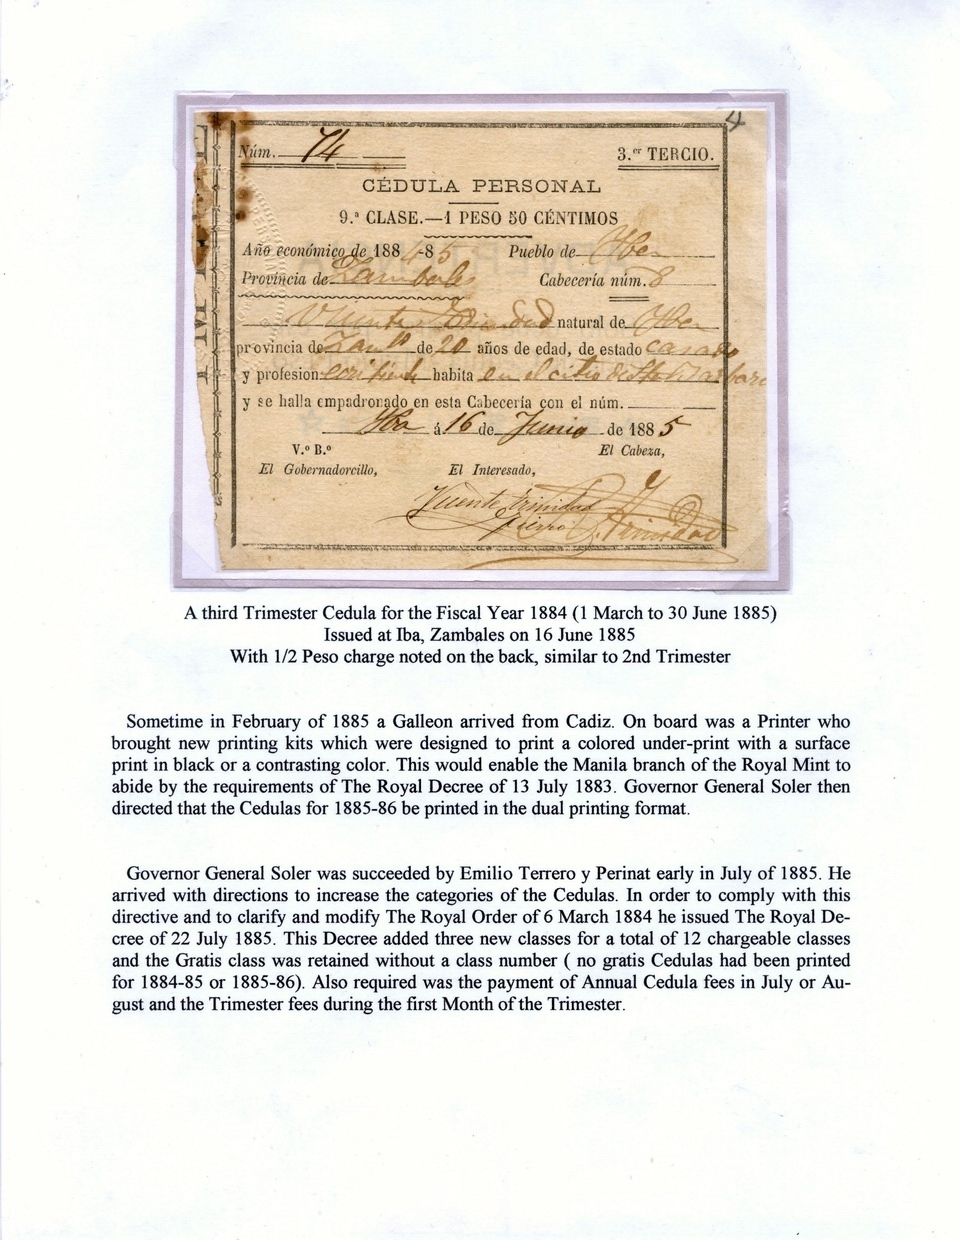 4
Núm. 74 3.er TERCIO.
CÉDULA PERSONAL
9.ª CLASE.—1 PESO 50 CÉNTIMOS
Año económico de 1884-85 Pueblo de Iba
Provincia de Zambales Cabecería núm. 8
Vicente Trinidad natural de Iba
provincia de Zamb.s de 20 años de edad, de estado casado
y profesion escribiente habita en el citio de Sta Barbara
y se halla empadronado en esta Cabecería con el núm.
Iba á 16 de Junio de 1885
V.º B.º El Cabeza,
El Gobernadorcillo, El Interesado,
Vicente Trinidad
Trinidad
A third Trimester Cedula for the Fiscal Year 1884 (1 March to 30 June 1885)
Issued at Iba, Zambales on 16 June 1885
With 1/2 Peso charge noted on the back, similar to 2nd Trimester
Sometime in February of 1885 a Galleon arrived from Cadiz. On board was a Printer who
brought new printing kits which were designed to print a colored under-print with a surface
print in black or a contrasting color. This would enable the Manila branch of the Royal Mint to
abide by the requirements of The Royal Decree of 13 July 1883. Governor General Soler then
directed that the Cedulas for 1885-86 be printed in the dual printing format.
Governor General Soler was succeeded by Emilio Terrero y Perinat early in July of 1885. He
arrived with directions to increase the categories of the Cedulas. In order to comply with this
directive and to clarify and modify The Royal Order of 6 March 1884 he issued The Royal De-
cree of 22 July 1885. This Decree added three new classes for a total of 12 chargeable classes
and the Gratis class was retained without a class number ( no gratis Cedulas had been printed
for 1884-85 or 1885-86). Also required was the payment of Annual Cedula fees in July or Au-
gust and the Trimester fees during the first Month of the Trimester.